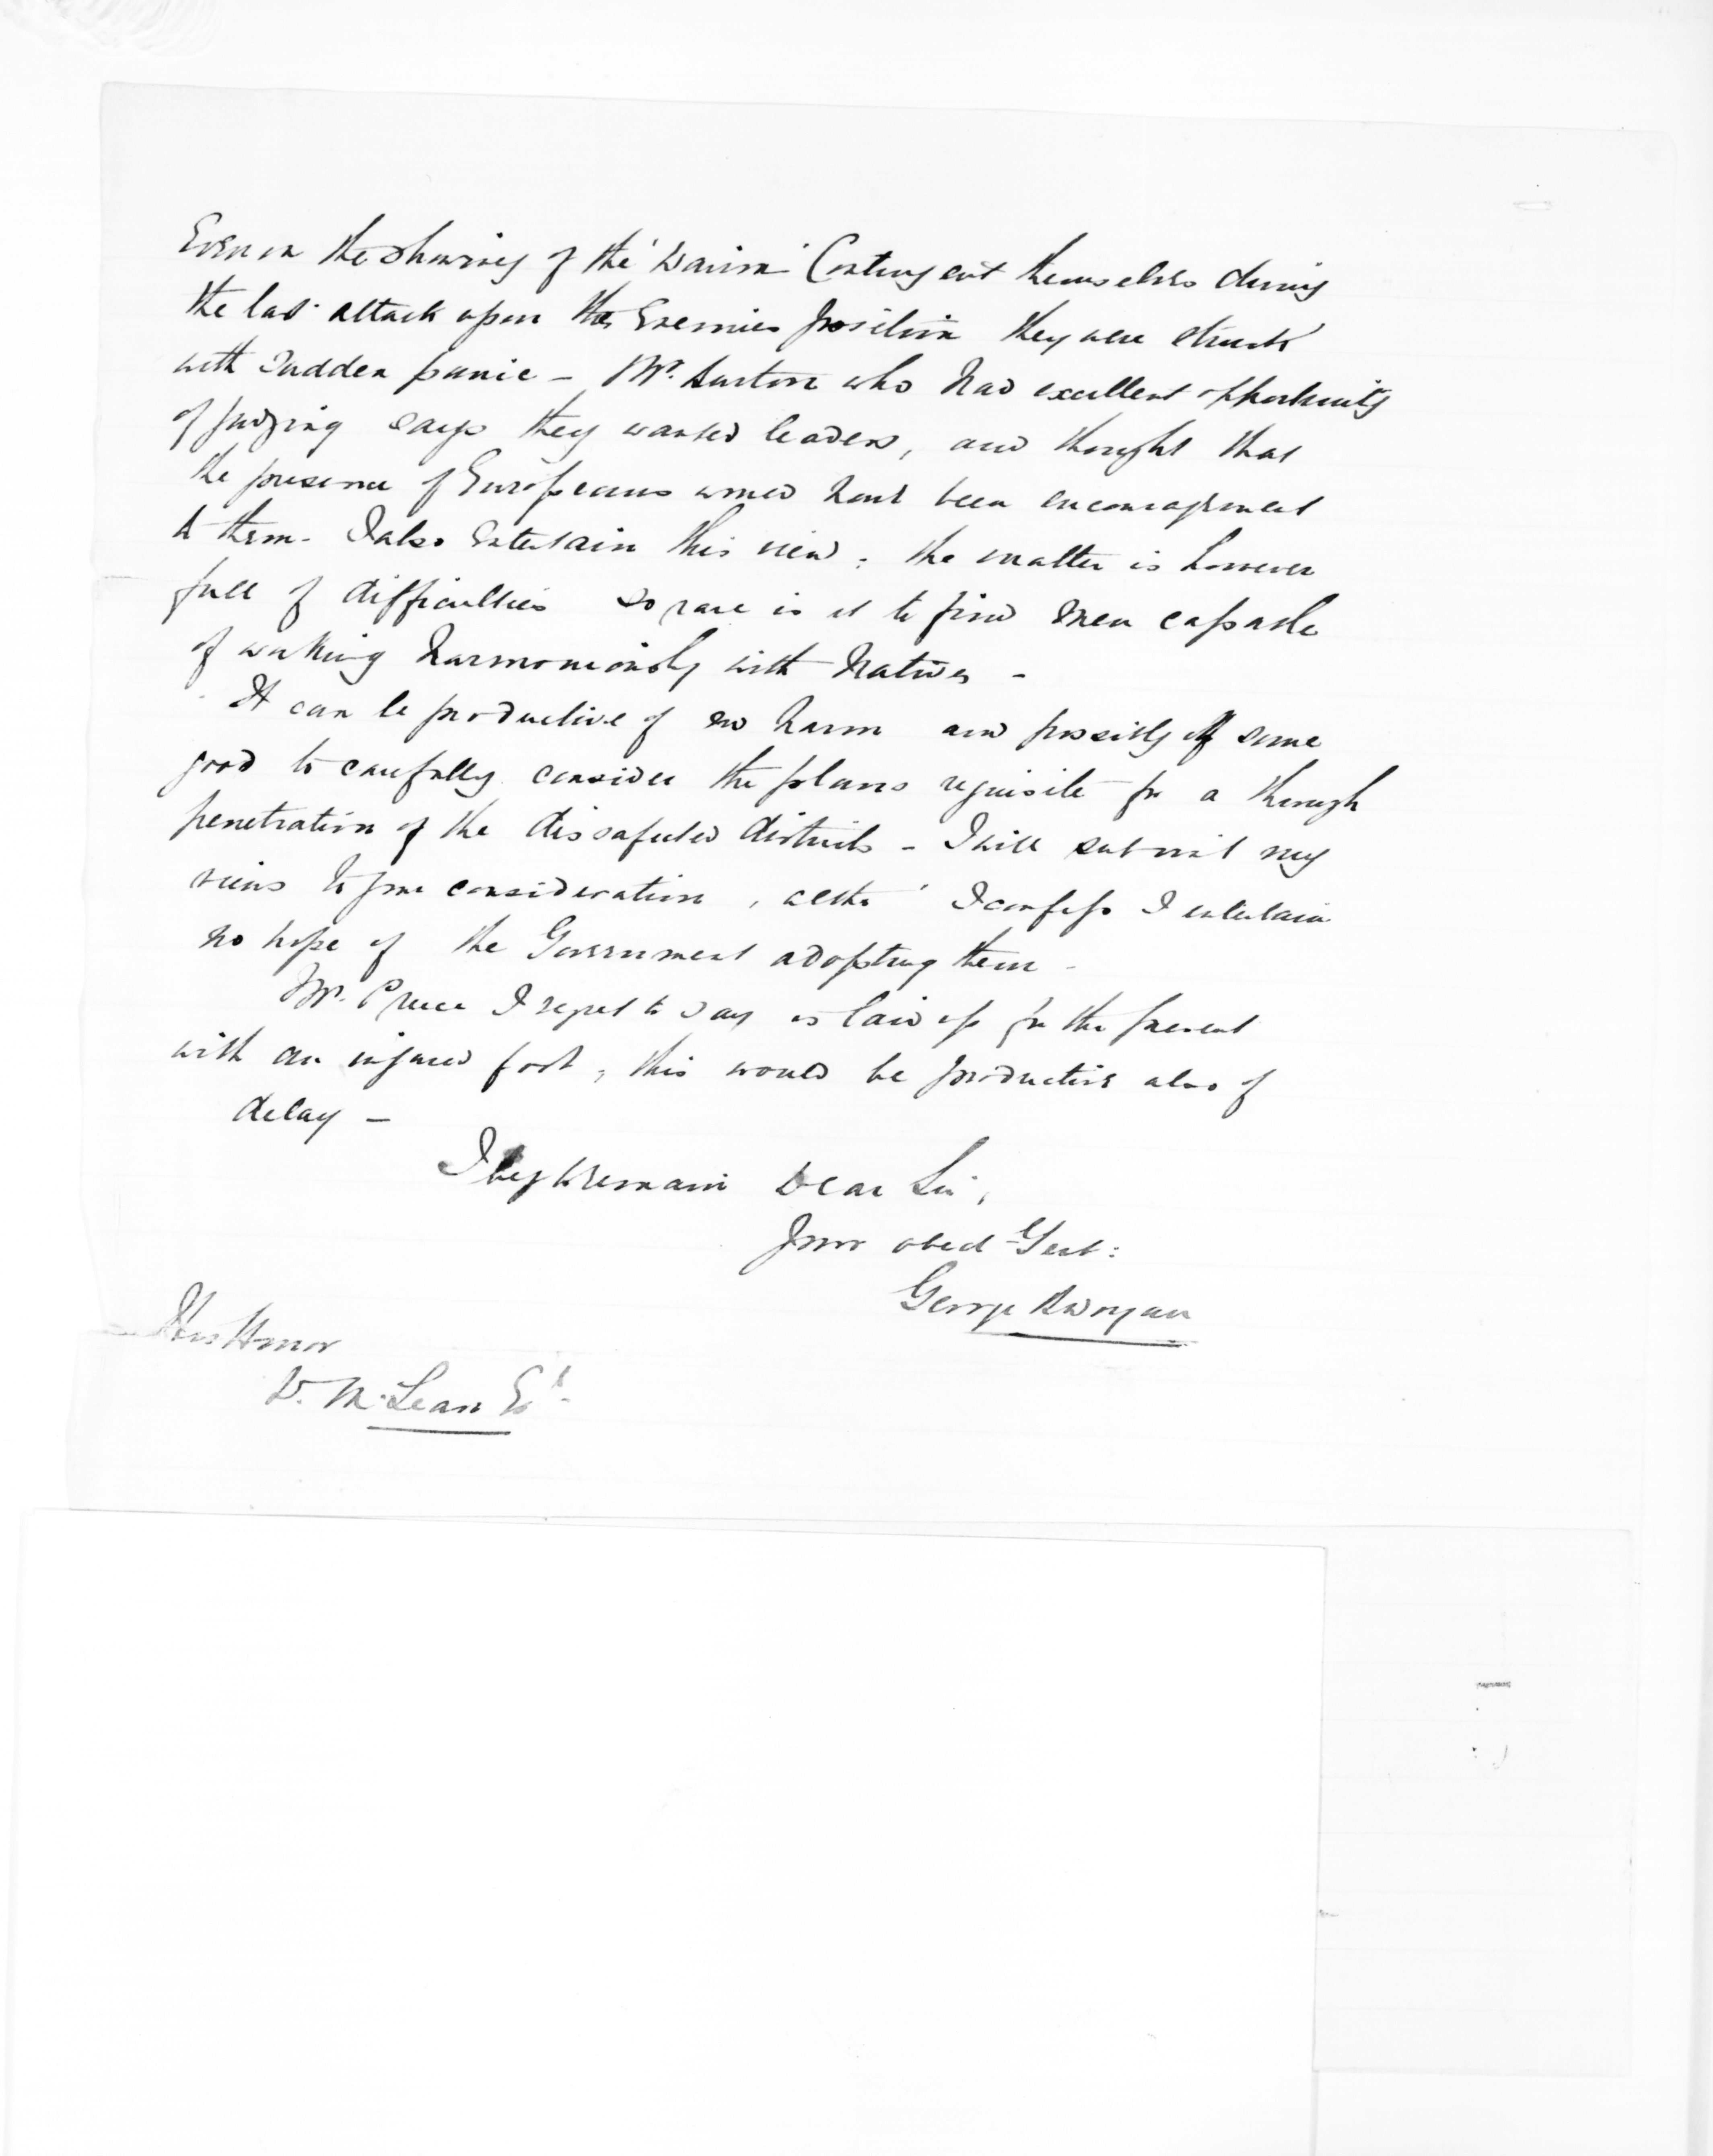 Even on the showing of the Wairoa Contingent themselves during
the last attack upon the Enemies position they were struck
with sudden panic - Mr. Burton who had excellent opportunity
of judging says they wanted leaders, and thought that
the presence of Europeans would have been encouragement
to them. I also Entertain this view; the matter is however
full of difficulties so rare is it to find men capable
of working harmoniously with Natives -
It can be productive of no harm and possibly of some
good to carefully consider the plans requisite for a through
penetration of the dissafected districts - I will submit my
views to your consideration, altho' I confess I entertain
no hope of the Government adopting them -
Mr. Preece I regret to say is laid up for the present
with an injured foot, this would be productive also of
delay -
I beg to remain Dear Sir,
Your obed Sert:
George Worgan
His Honor
D. McLean Esq